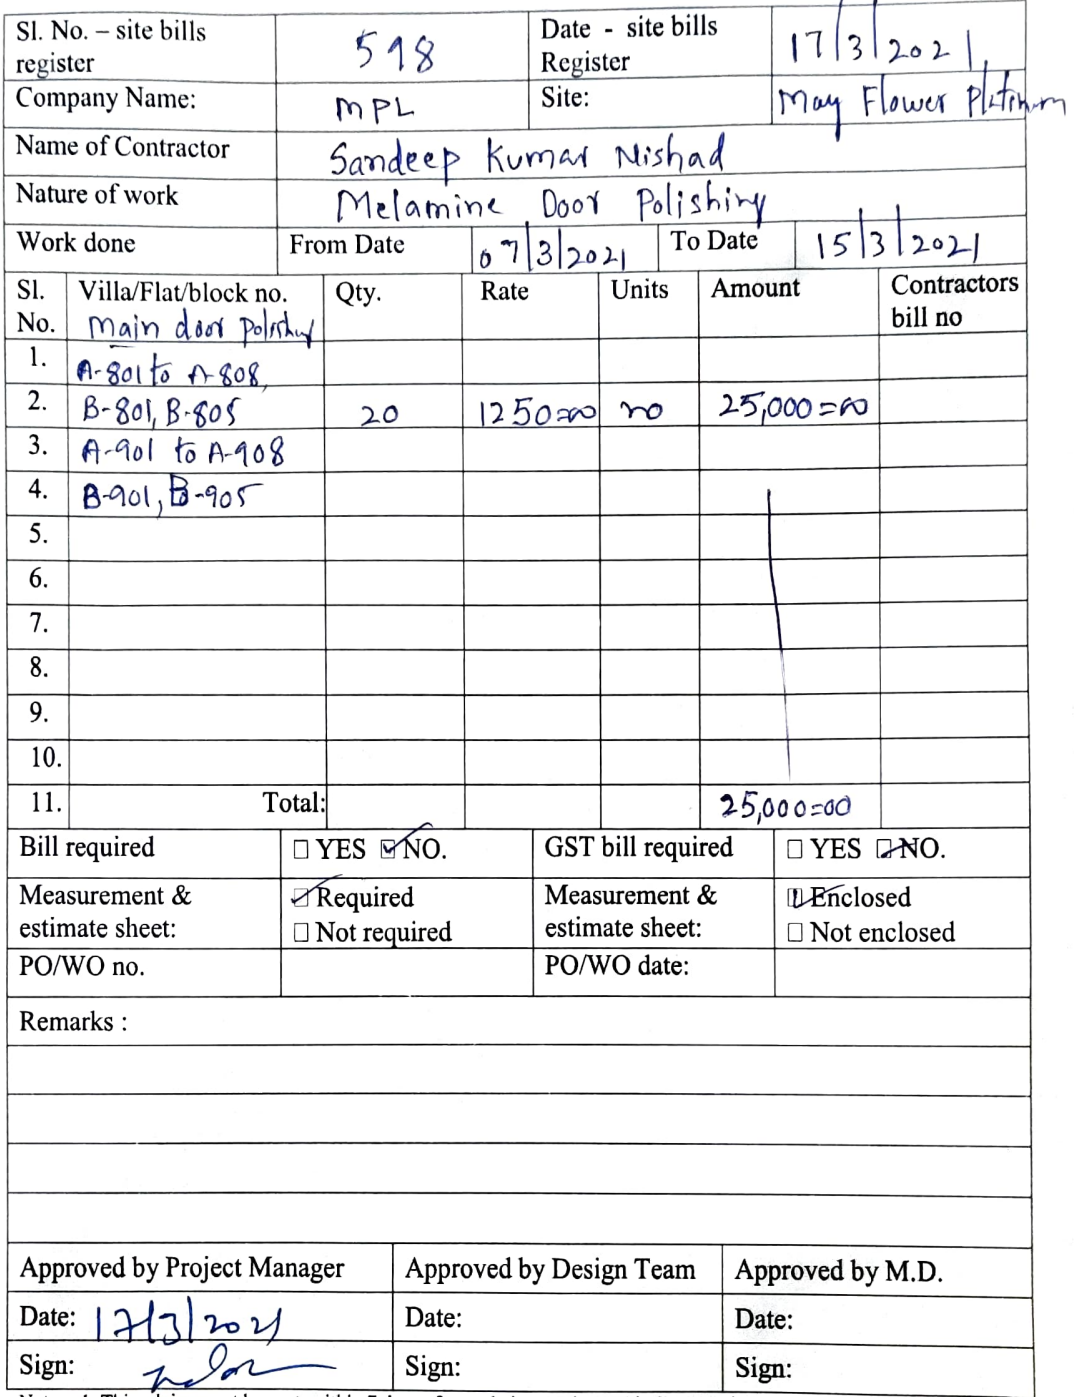 Sl. No. – site bills register 598 Date - site bills Register 17/3/2021
Company Name: MPL Site: May Flower Platinum
Name of Contractor Sandeep Kumar Nishad
Nature of work Melamine Door Polishing
Work done From Date 07/3/2021 To Date 15/3/2021
Sl. No. Villa/Flat/block no. Main door polishing Qty. Rate Units Amount Contractors bill no
1. A-801 to A-808,
2. B-801, B-805 20 1250=00 no 25,000=00
3. A-901 to A-908
4. B-901, B-905
5.
6.
7.
8.
9.
10.
11. Total: 25,000=00
Bill required ☐ YES ☑ NO. GST bill required ☐ YES ☑ NO.
Measurement & estimate sheet: ☑ Required ☐ Not required Measurement & estimate sheet: ☑ Enclosed ☐ Not enclosed
PO/WO no. PO/WO date:
Remarks :
Approved by Project Manager Approved by Design Team Approved by M.D.
Date: 17/3/2021 Date: Date:
Sign: Sign: Sign: